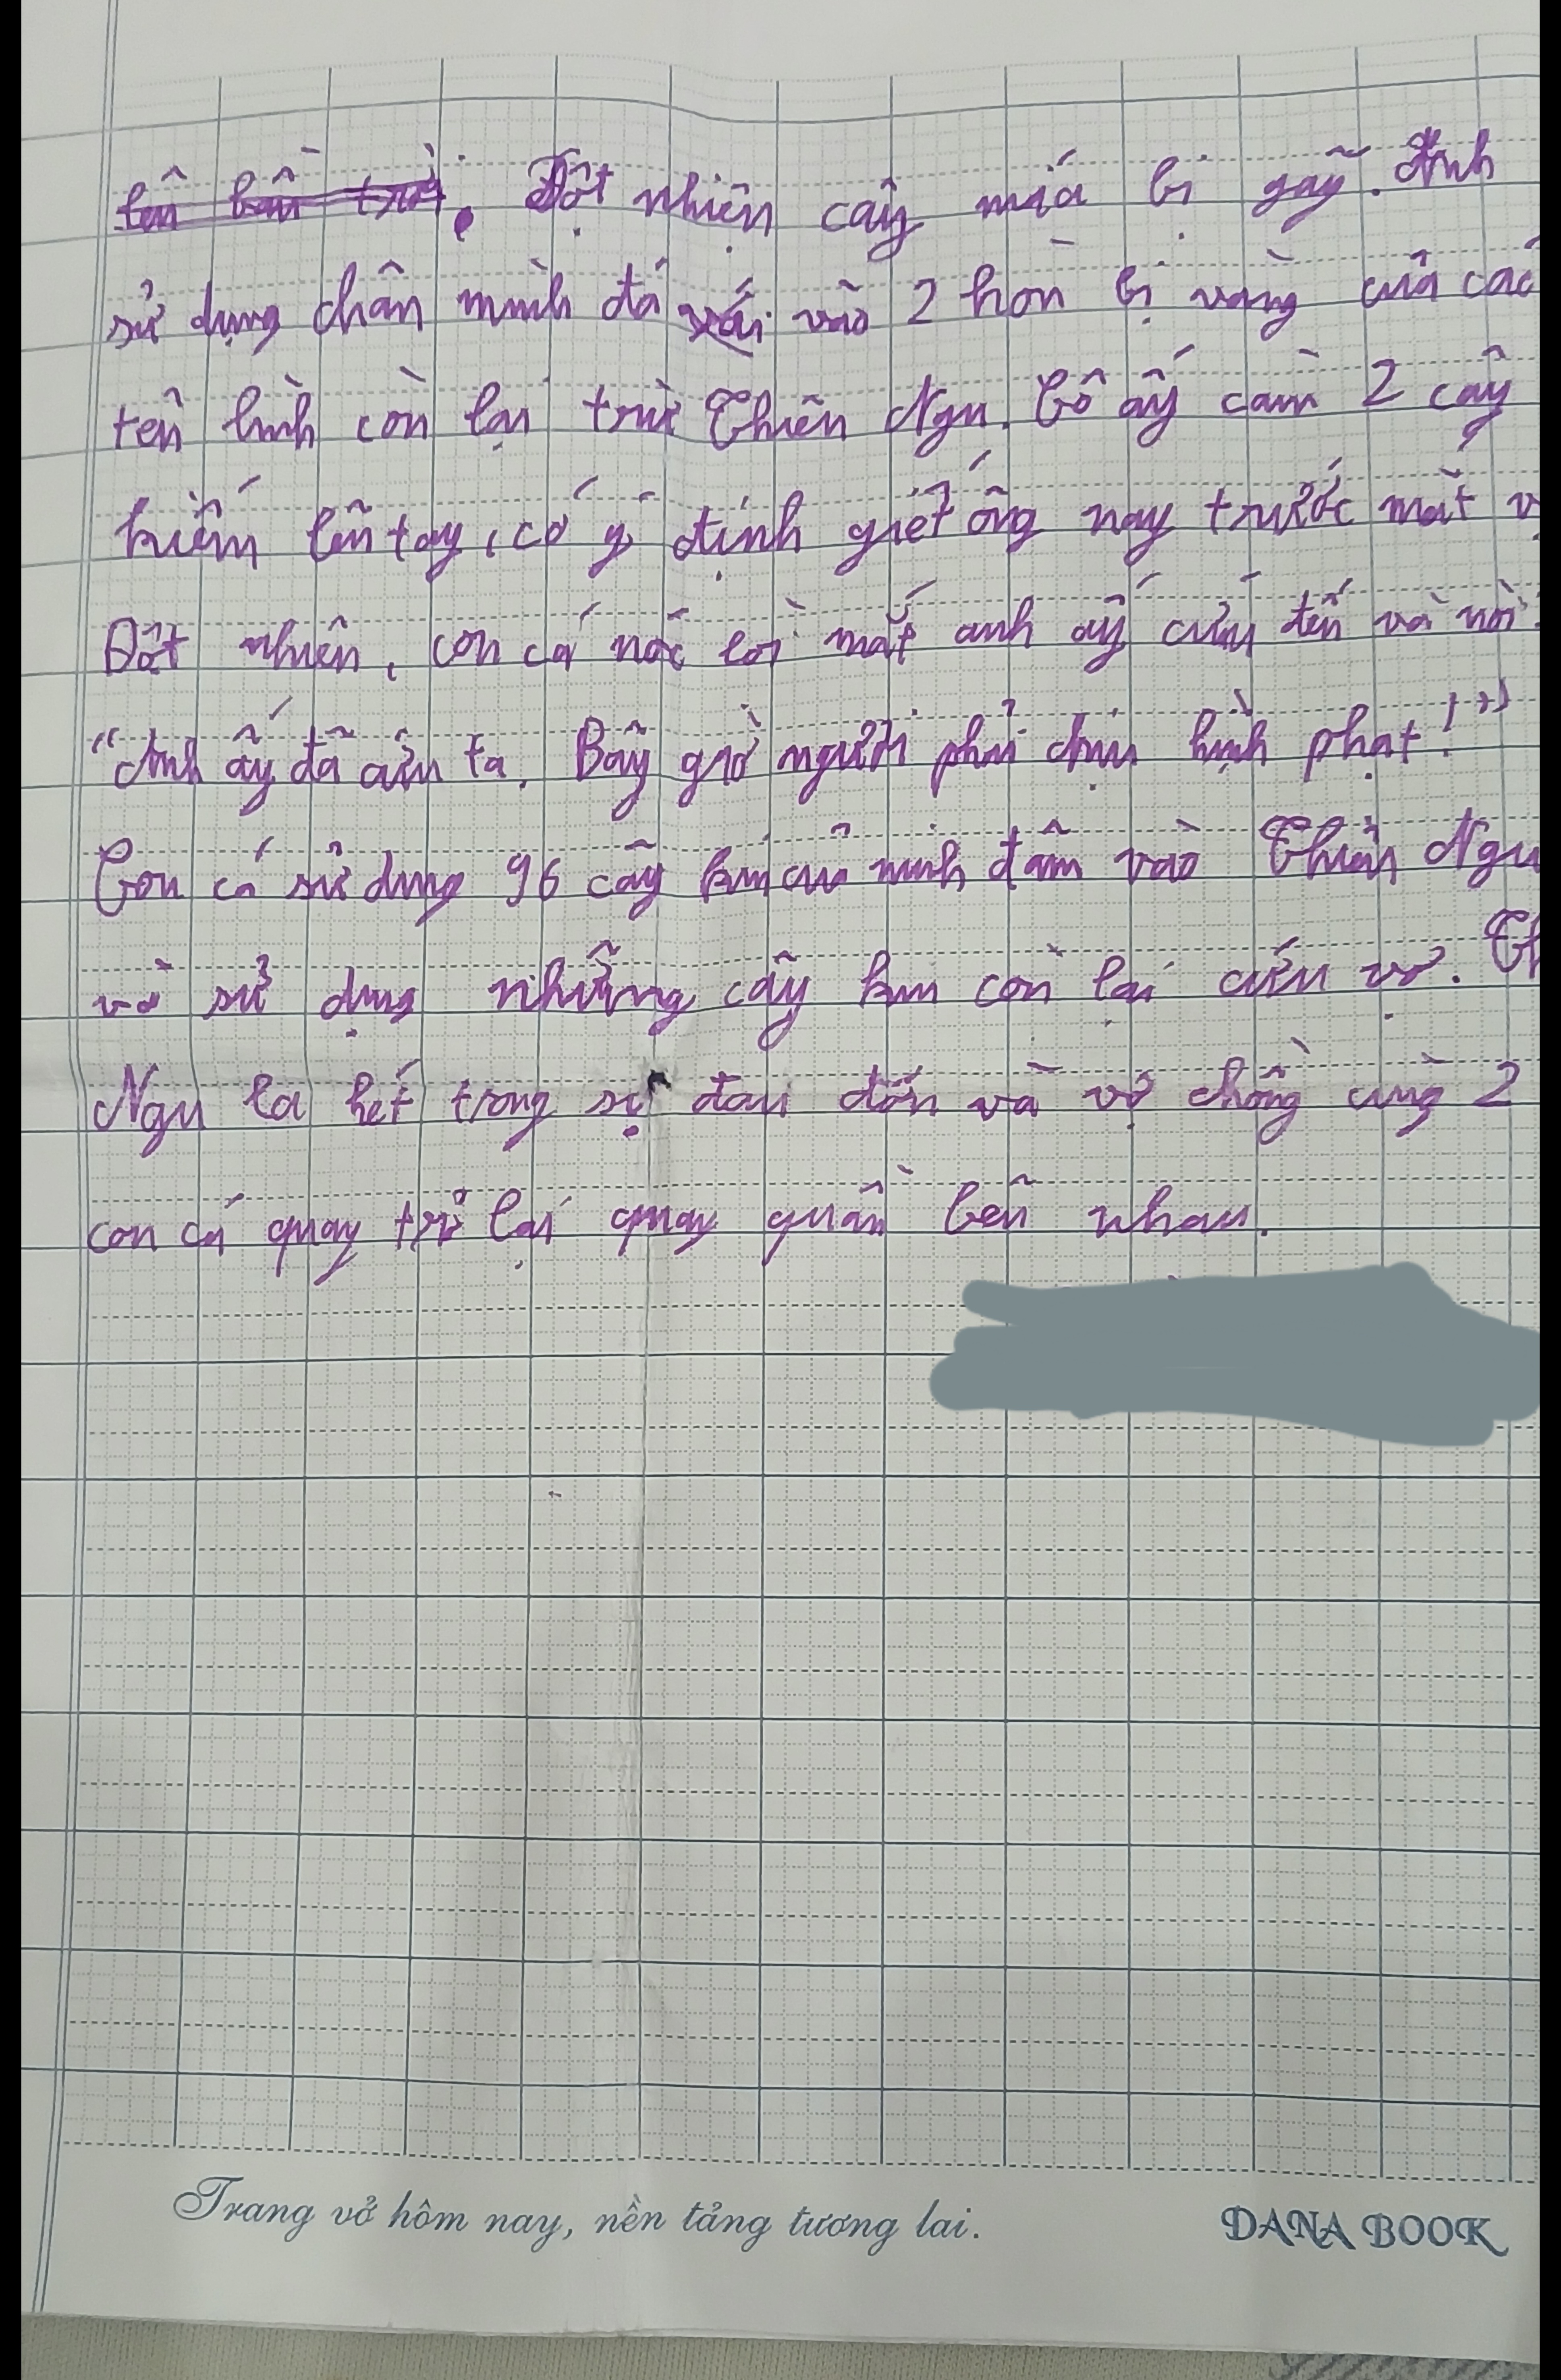 lên bầu trời. Đột nhiên cây mía bị gãy. Anh
sử dụng chân mình đá vào 2 hòn bi vàng của các
tên lính còn lại trừ Thiên Ngu. Cô ấy cầm 2 cây
kiếm lên tay, cố ý định giết ông này trước mắt
Đột nhiên, con cá nóc lòi mắt anh ấy cứu đến và nói:
"Anh ấy đã cứu ta. Bây giờ ngươi phải chịu hình phạt!"
Con cá sử dụng 96 cây kim của mình đâm vào Thiên Ngu
và sử dụng những cây kim còn lại cứu vợ.
Ngu la hét trong sự đau đớn và vợ chồng cùng 2
con cá quay trở lại quay quần bên nhau.
Trang vở hôm nay, nền tảng tương lai.
DANA BOOK